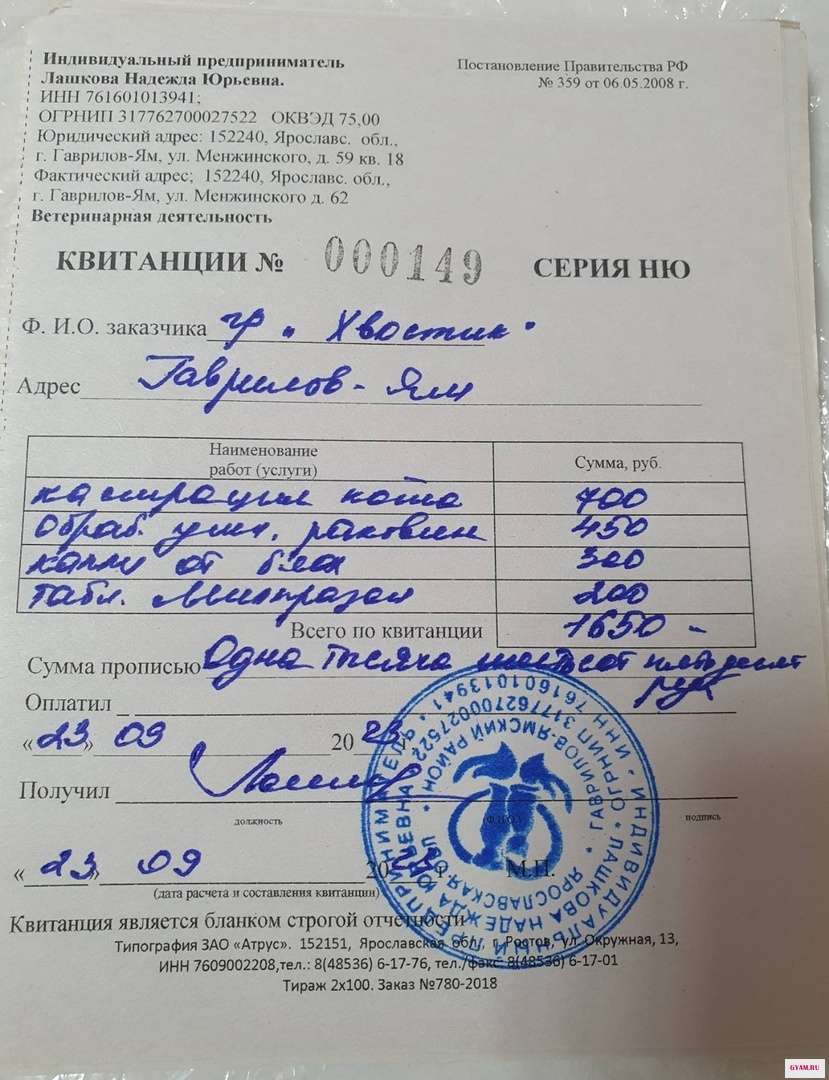 Индивидуальный предприниматель
Лашкова Надежда Юрьевна.
ИНН 761601013941;
ОГРНИП 317762700027522 ОКВЭД 75,00
Юридический адрес: 152240, Ярославс. обл.,
г. Гаврилов-Ям, ул. Менжинского, д. 59 кв. 18
Фактический адрес; 152240, Ярославс. обл.,
г. Гаврилов-Ям, ул. Менжинского д. 62
Ветеринарная деятельность
Постановление Правительства РФ
№ 359 от 06.05.2008 г.
КВИТАНЦИИ № 000149 СЕРИЯ НЮ
Ф. И.О. заказчика гр „Хвостик"
Адрес Гаврилов-Ям
Наименование
работ (услуги)
Сумма, руб.
кастрация кота 700
Обраб. ушн. раковин 450
капли от блох 300
табл. Милпразон 200
Всего по квитанции 1650 -
Сумма прописью Одна тысяча шестьсот пятьдесят
руб
Оплатил
«23» 09 2023 г.
Получил
должность (Ф.И.О.) подпись
«23» 09 20 г. М.П.
(дата расчета и составления квитанции)
Квитанция является бланком строгой отчетности
Типография ЗАО «Атрус». 152151, Ярославская обл., г. Ростов, ул. Окружная, 13,
ИНН 7609002208,тел.: 8(48536) 6-17-76, тел./факс: 8(48536) 6-17-01
Тираж 2х100. Заказ №780-2018
ИНДИВИДУАЛЬНЫЙ ПРЕДПРИНИМАТЕЛЬ • ИНН 761601013941 •
ЛАШКОВА НАДЕЖДА ЮРЬЕВНА • ОГРНИП 317762700027522 •
ЯРОСЛАВСКАЯ ОБЛ • ГАВРИЛОВ-ЯМСКИЙ РАЙОН •
GYAM.RU